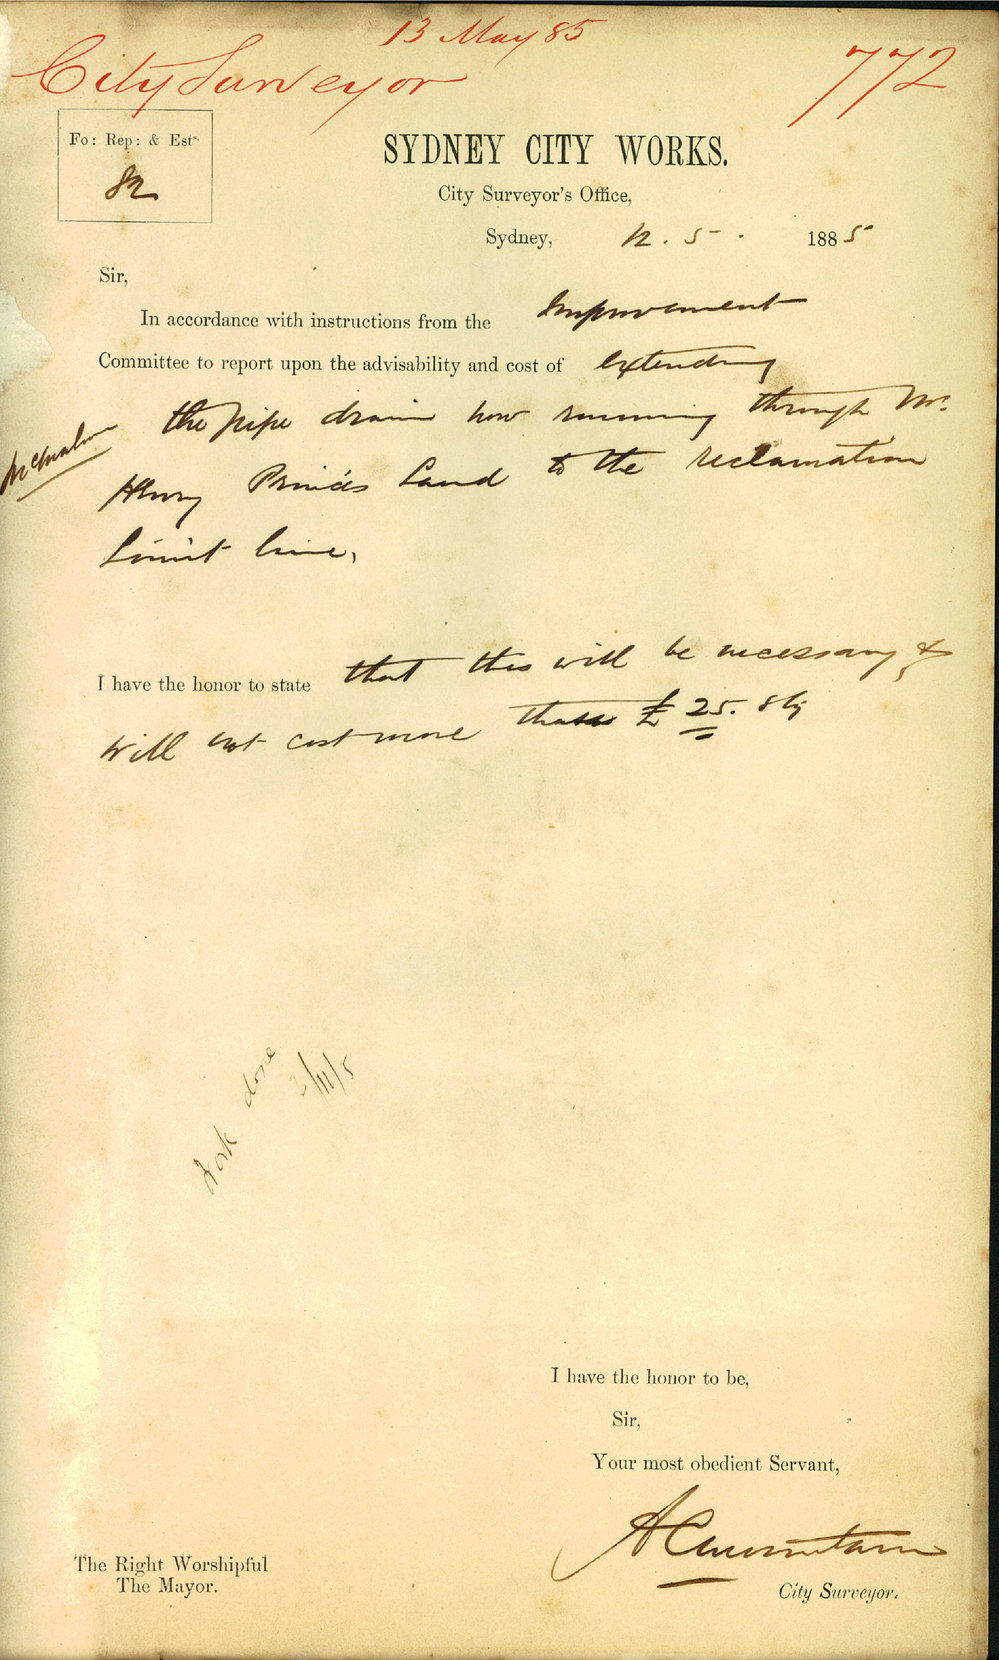 13 May 85
City Surveyor
772
Fo: Rep: & Ests.
82
SYDNEY CITY WORKS.
City Surveyor's Office,
Sydney, 12. 5. 1885
Sir,
In accordance with instructions from the Improvement
Committee to report upon the advisability and cost of extending
the pipe drain now running through Mr.
Henry Prince's Land to the reclamation
limit line,
I have the honor to state that this will be necessary &
will not cost more than £25.
Work done
/11/5
I have the honor to be,
Sir,
Your most obedient Servant,
City Surveyor.
The Right Worshipful
The Mayor.